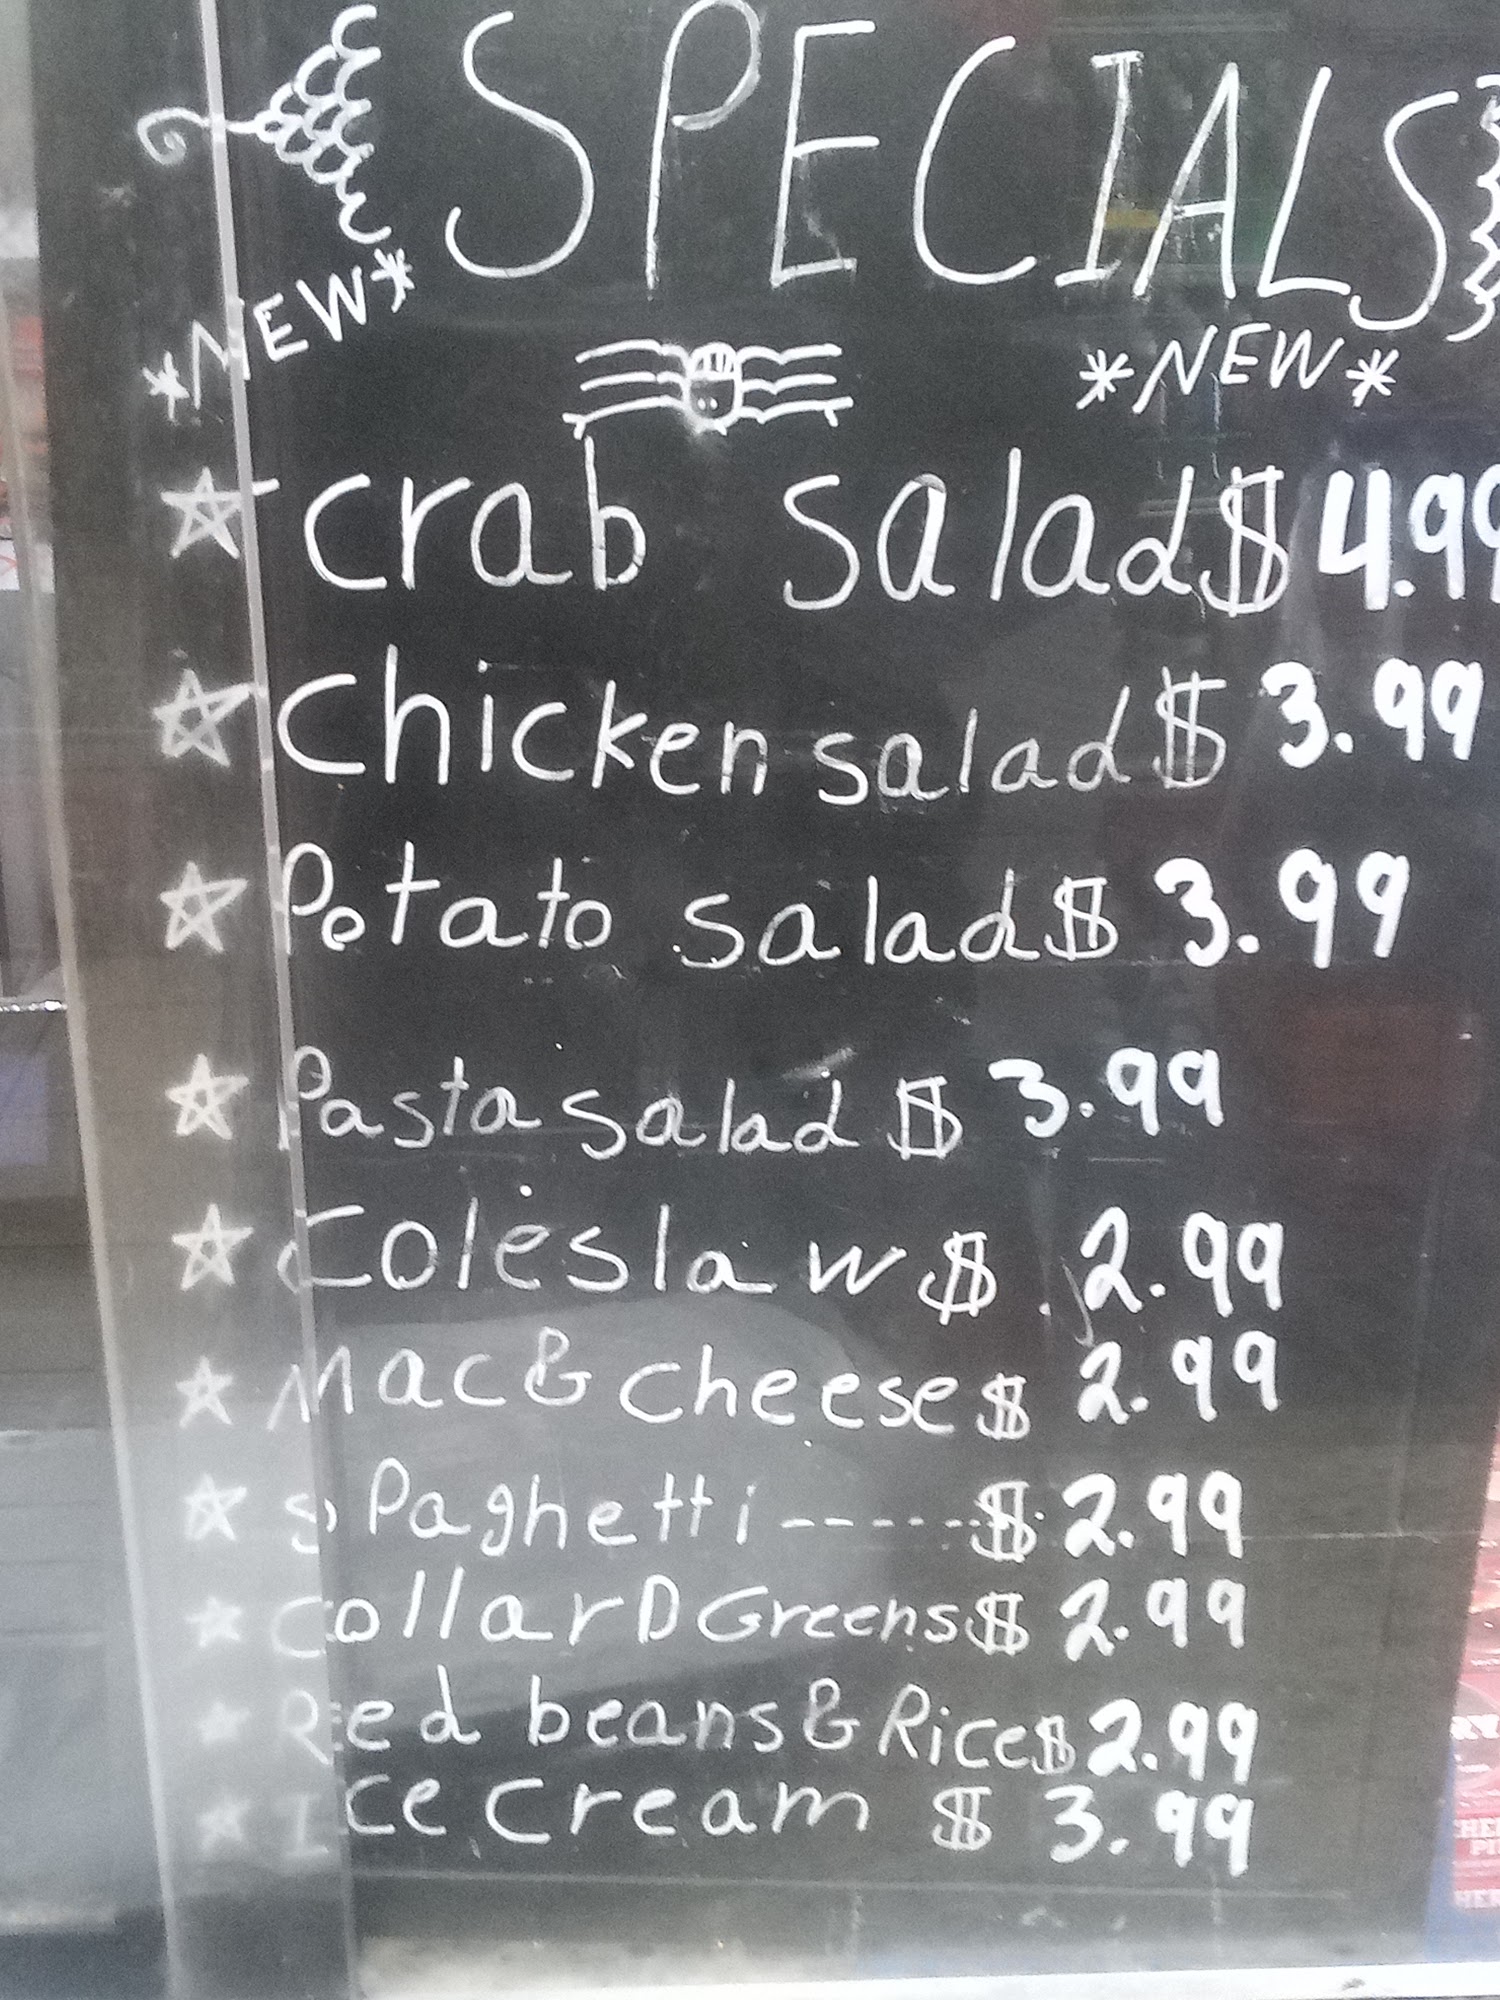 SPECIALS
*NEW* *NEW*
Crab Salad $ 4.99
Chicken salad $ 3.99
Potato salad $ 3.99
Pasta salad $ 3.99
Coleslaw $ 2.99
Mac & Cheese $ 2.99
sPaghetti ------ $ 2.99
CollarD Greens $ 2.99
Red beans & Rice $ 2.99
Ice Cream $ 3.99